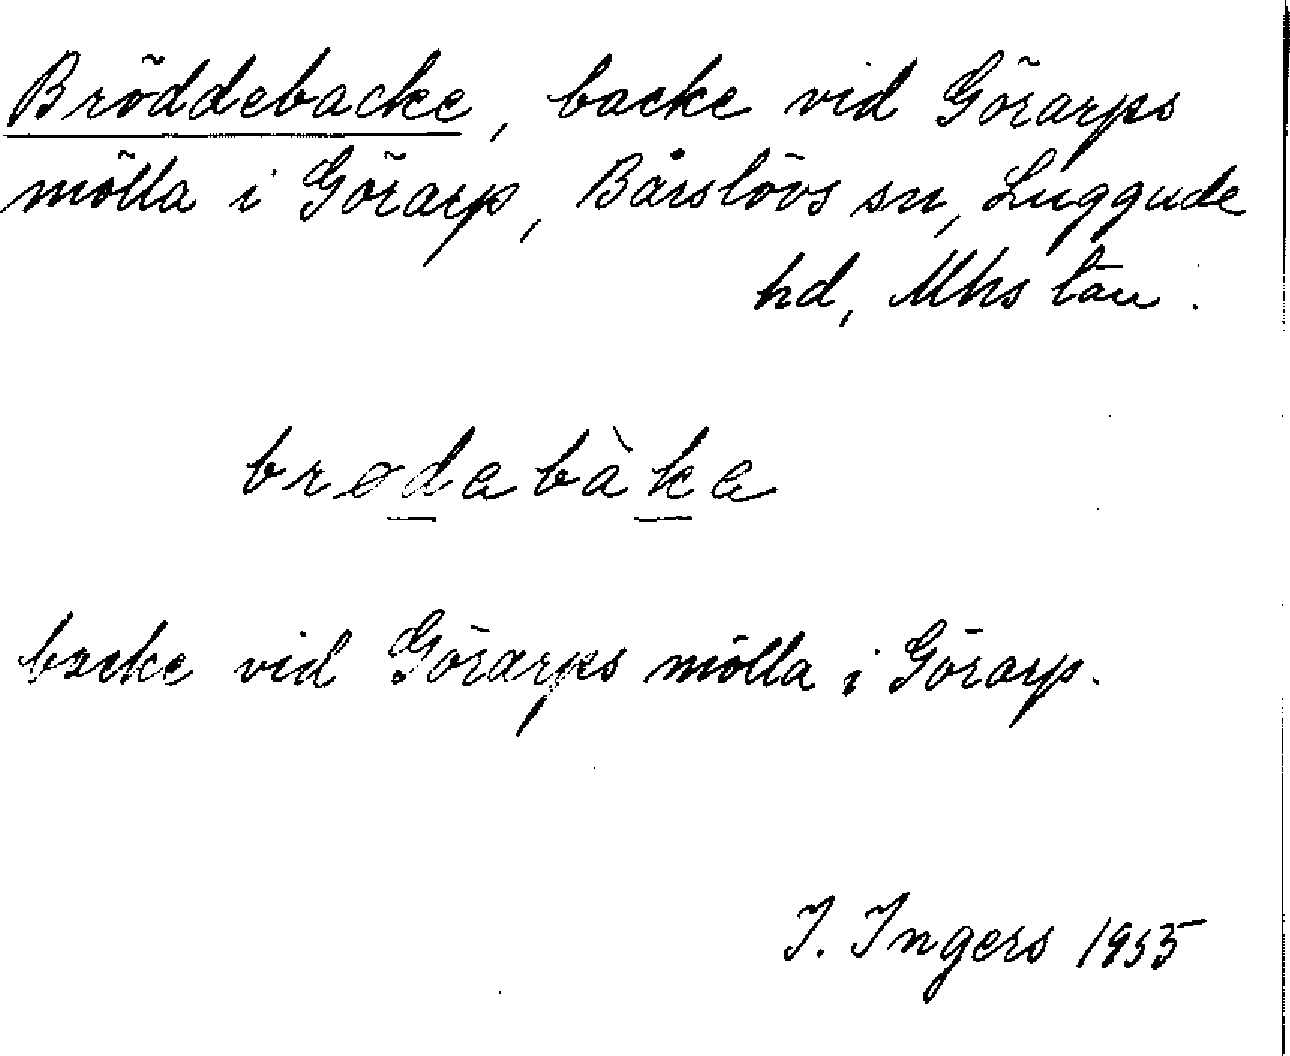 Bröddebacke, backe vid Görarps
mölla i Görarp, Bårslövs sn, Luggude
hd, Mhs län.
brødabàka
backe vid Görarps mölla i Görarp.
I. Ingers 1955